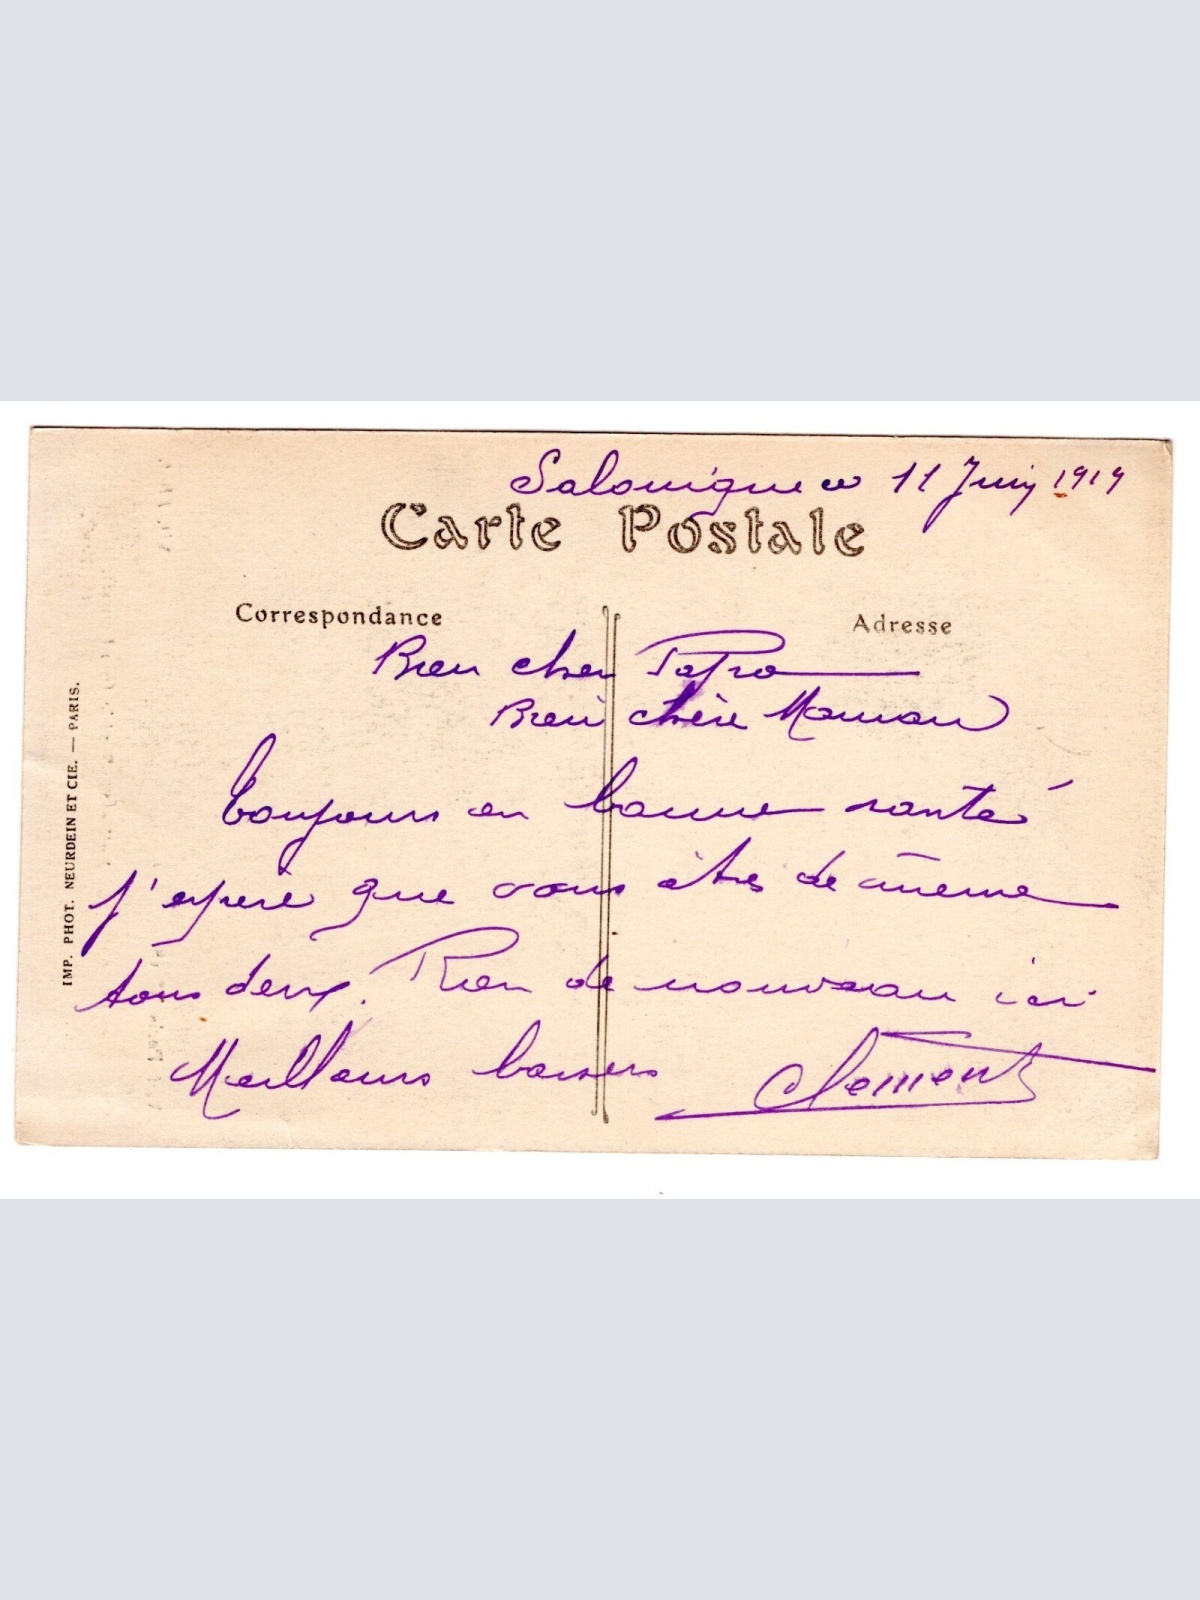 Salonique ce 11 Juin 1919
Carte Postale
Correspondance
Adresse
Bien cher Papa
Bien chère Maman
Toujours en bonne santé
j'espère que vous êtes de même
tous deux. Rien de nouveau ici
Meilleurs baisers Clement
IMP. PHOT. NEURDEIN ET CIE. — PARIS.